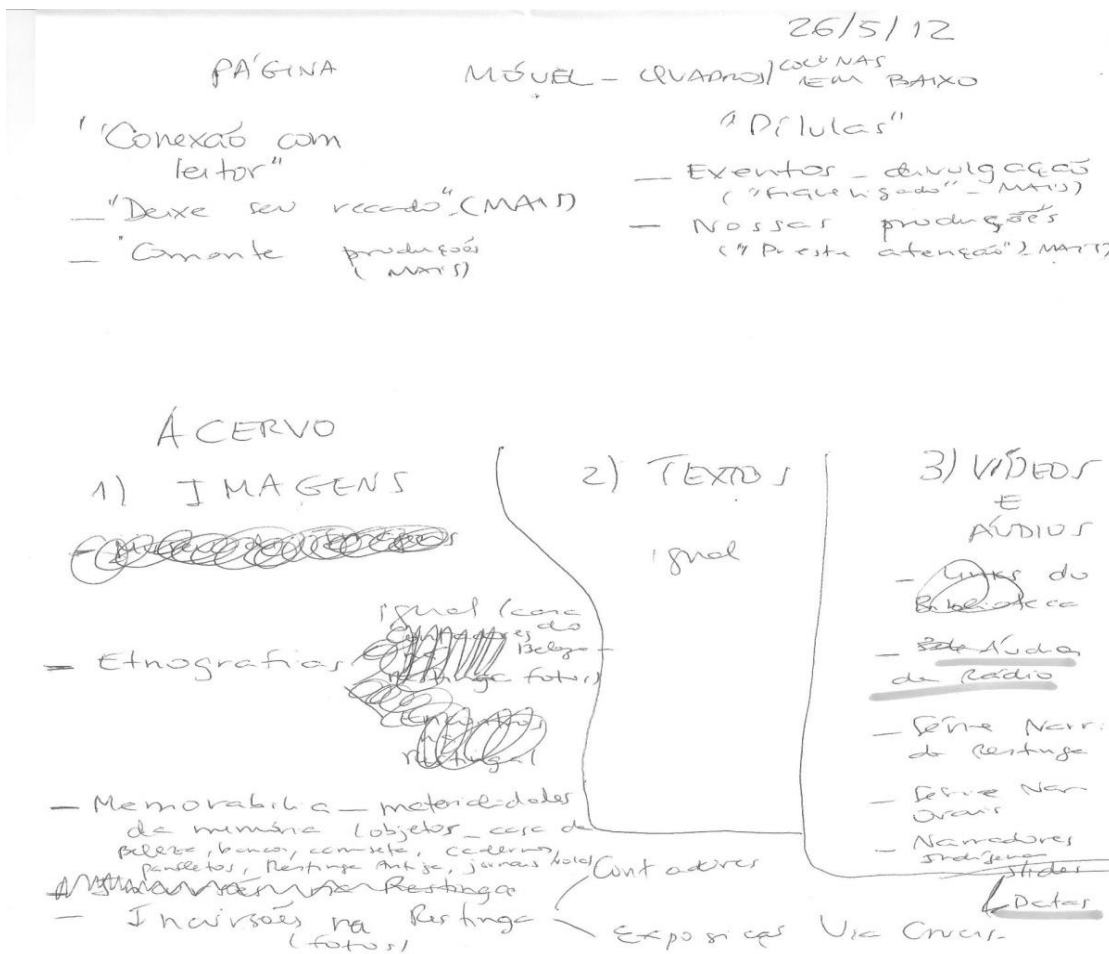 26/5/12
PÁGINA MÓVEL - QUADROS/COLUNAS EM BAIXO
"Conexão com
leitor"
— "Deixe seu recado" (MAIS)
— "Comente produções
(MAIS)
"Pílulas"
— Eventos - divulgação
("fique ligado" - MAIS)
— Nossas produções
("Preste atenção" MAIS)
ACERVO
1) IMAGENS
— Etnografias
igual (casa
do
Beleza
fotos)
— Memorabilia — materialidades
da memória (objetos - casa de
beleza, bancos, camiseta, cadernos,
panfletos, Restinga Antiga, jornais
Restinga
— Incursões na Restinga
(fotos)
Contadores
Exposição Via Crucis
2) TEXTOS
igual
3) VÍDEOS
E
ÁUDIOS
— Links do
Biblioteca
— Áudio
de Rádio
— Série Narr.
da Restinga
— Série Nar
Orais
— Narradores
Indígena
slides
Datas